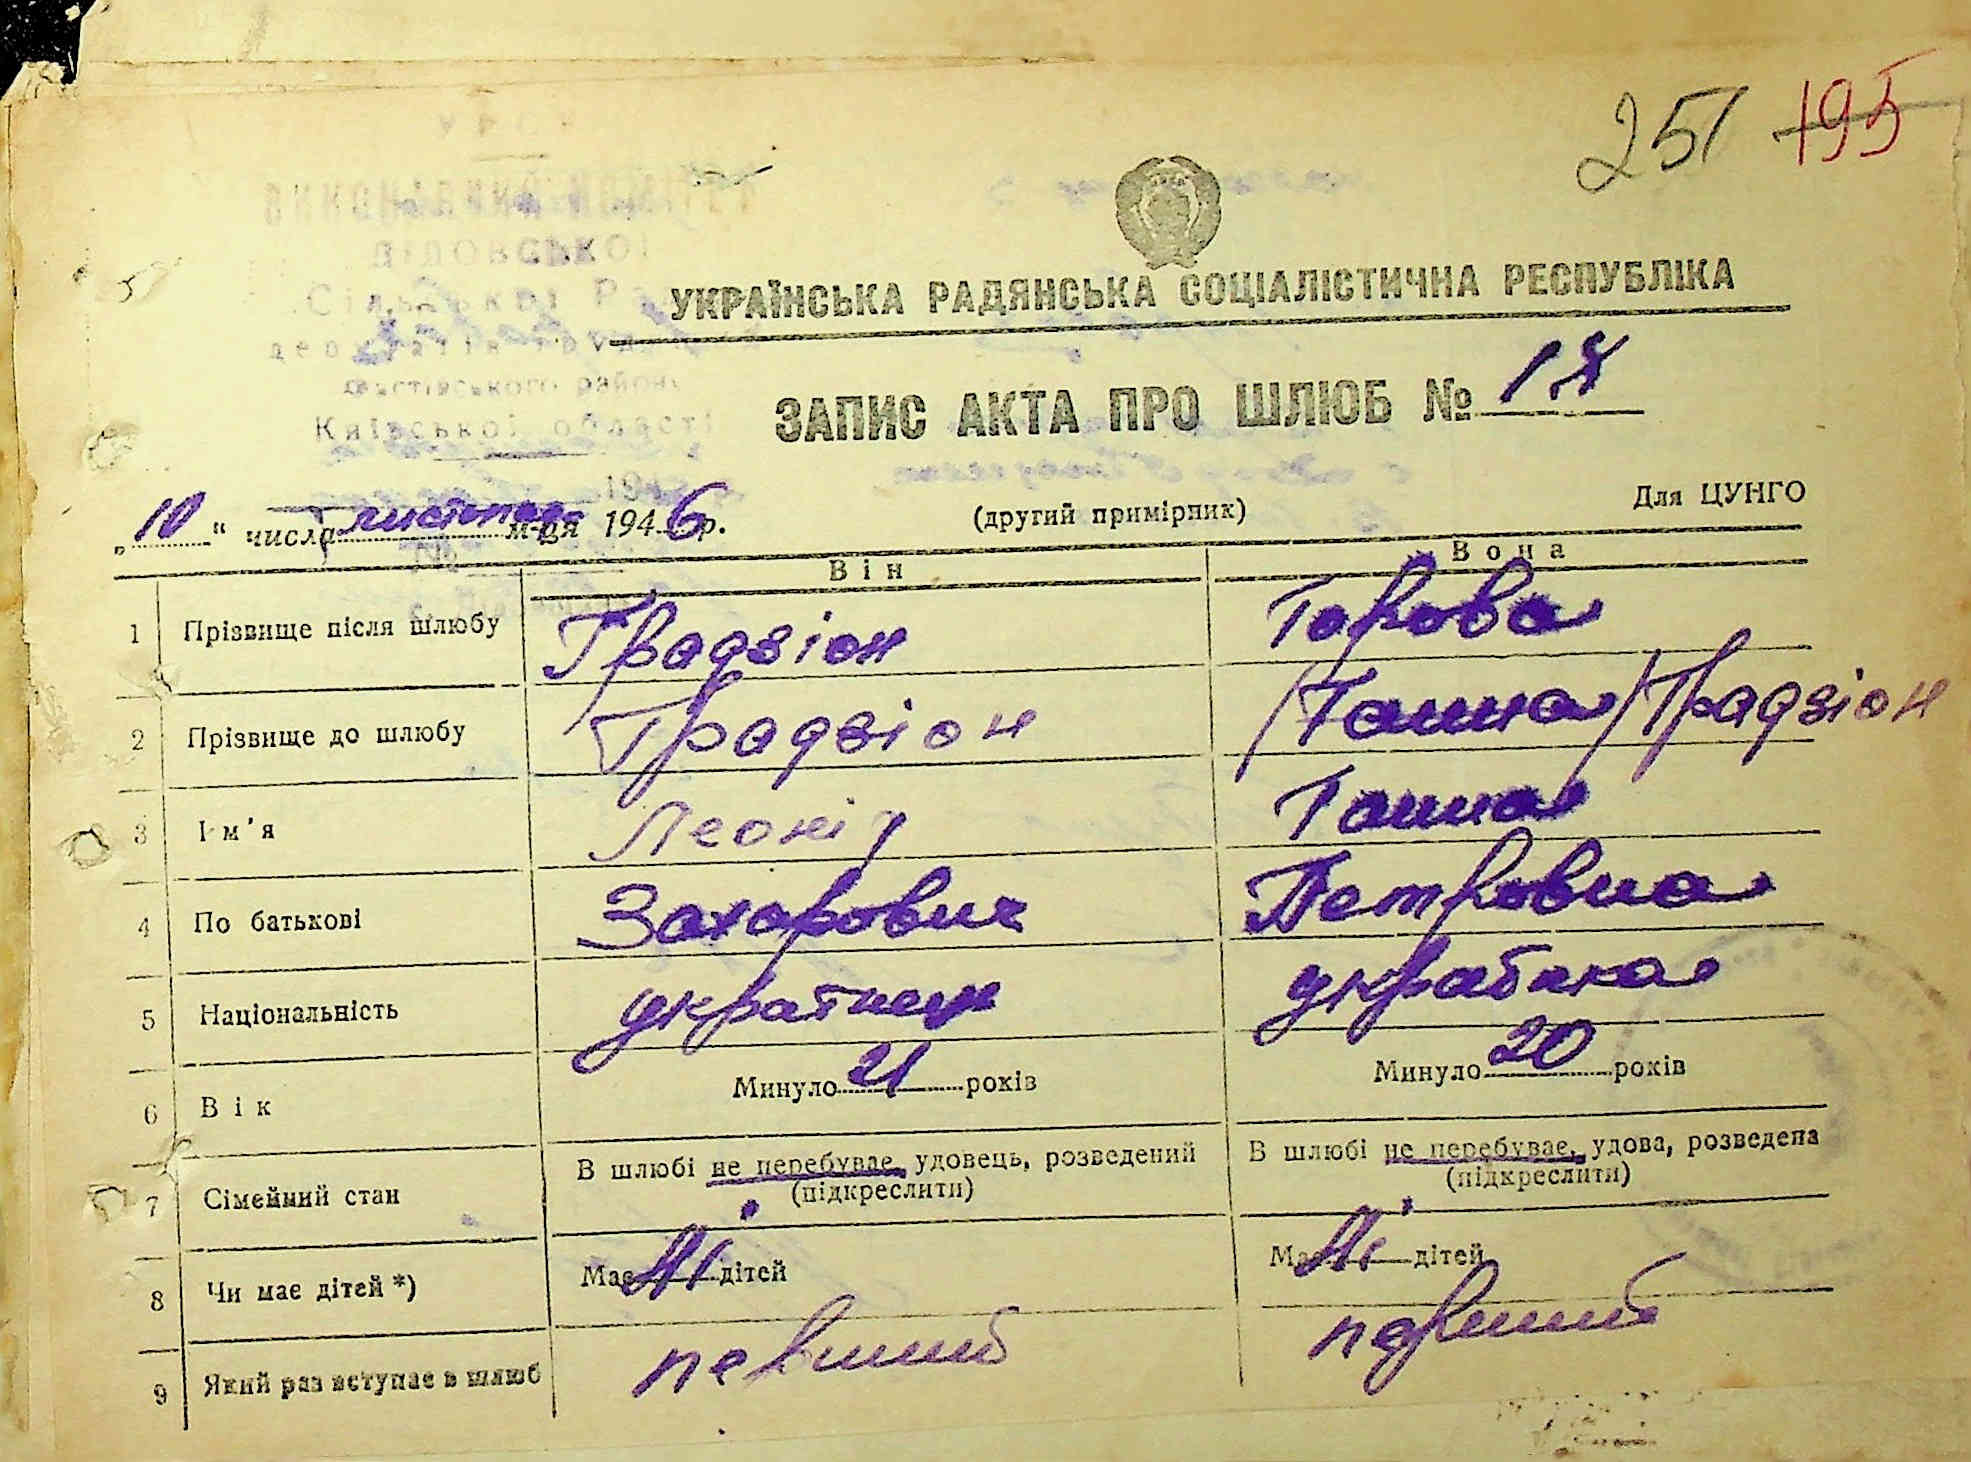 251 195
УКРАЇНСЬКА РАДЯНСЬКА СОЦІАЛІСТИЧНА РЕСПУБЛІКА
ЗАПИС АКТА ПРО ШЛЮБ №
„10" числа листопада м-ця 1946 р. (другий примірник) Для ЦУНГО
Він Вона
1 Прізвище після шлюбу Градзіон Горова
2 Прізвище до шлюбу Градзіон /Ганна/ Градзіон
3 Ім'я Леонід Ганна
4 По батькові Захарович Петровна
5 Національність українец українка
6 Вік Минуло 21 років Минуло 20 років
7 Сімейний стан В шлюбі не перебуває, удовець, розведений В шлюбі не перебуває, удова, розведена
(підкреслити) (підкреслити)
8 Чи має дітей *) Має Ні дітей Має Ні дітей
9 Який раз вступає в шлюб перший перший
Київської області